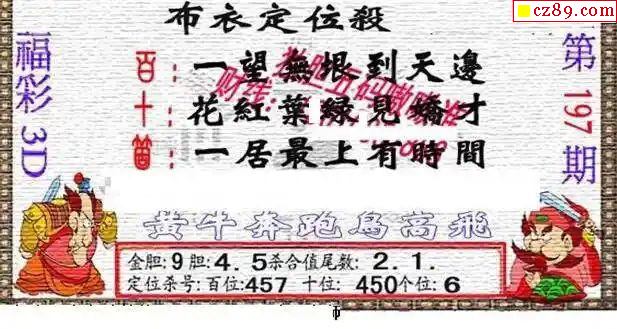 cz89.com
布衣定位殺
福彩3D
第197期
百:一望無垠到天邊
十:花紅葉緑見嬌才
箇:一居最上有時間
黄牛奔跑馬高飛
金胆:9胆:4.5杀合值尾数:2.1.
定位杀号:百位:457 十位:450个位:6